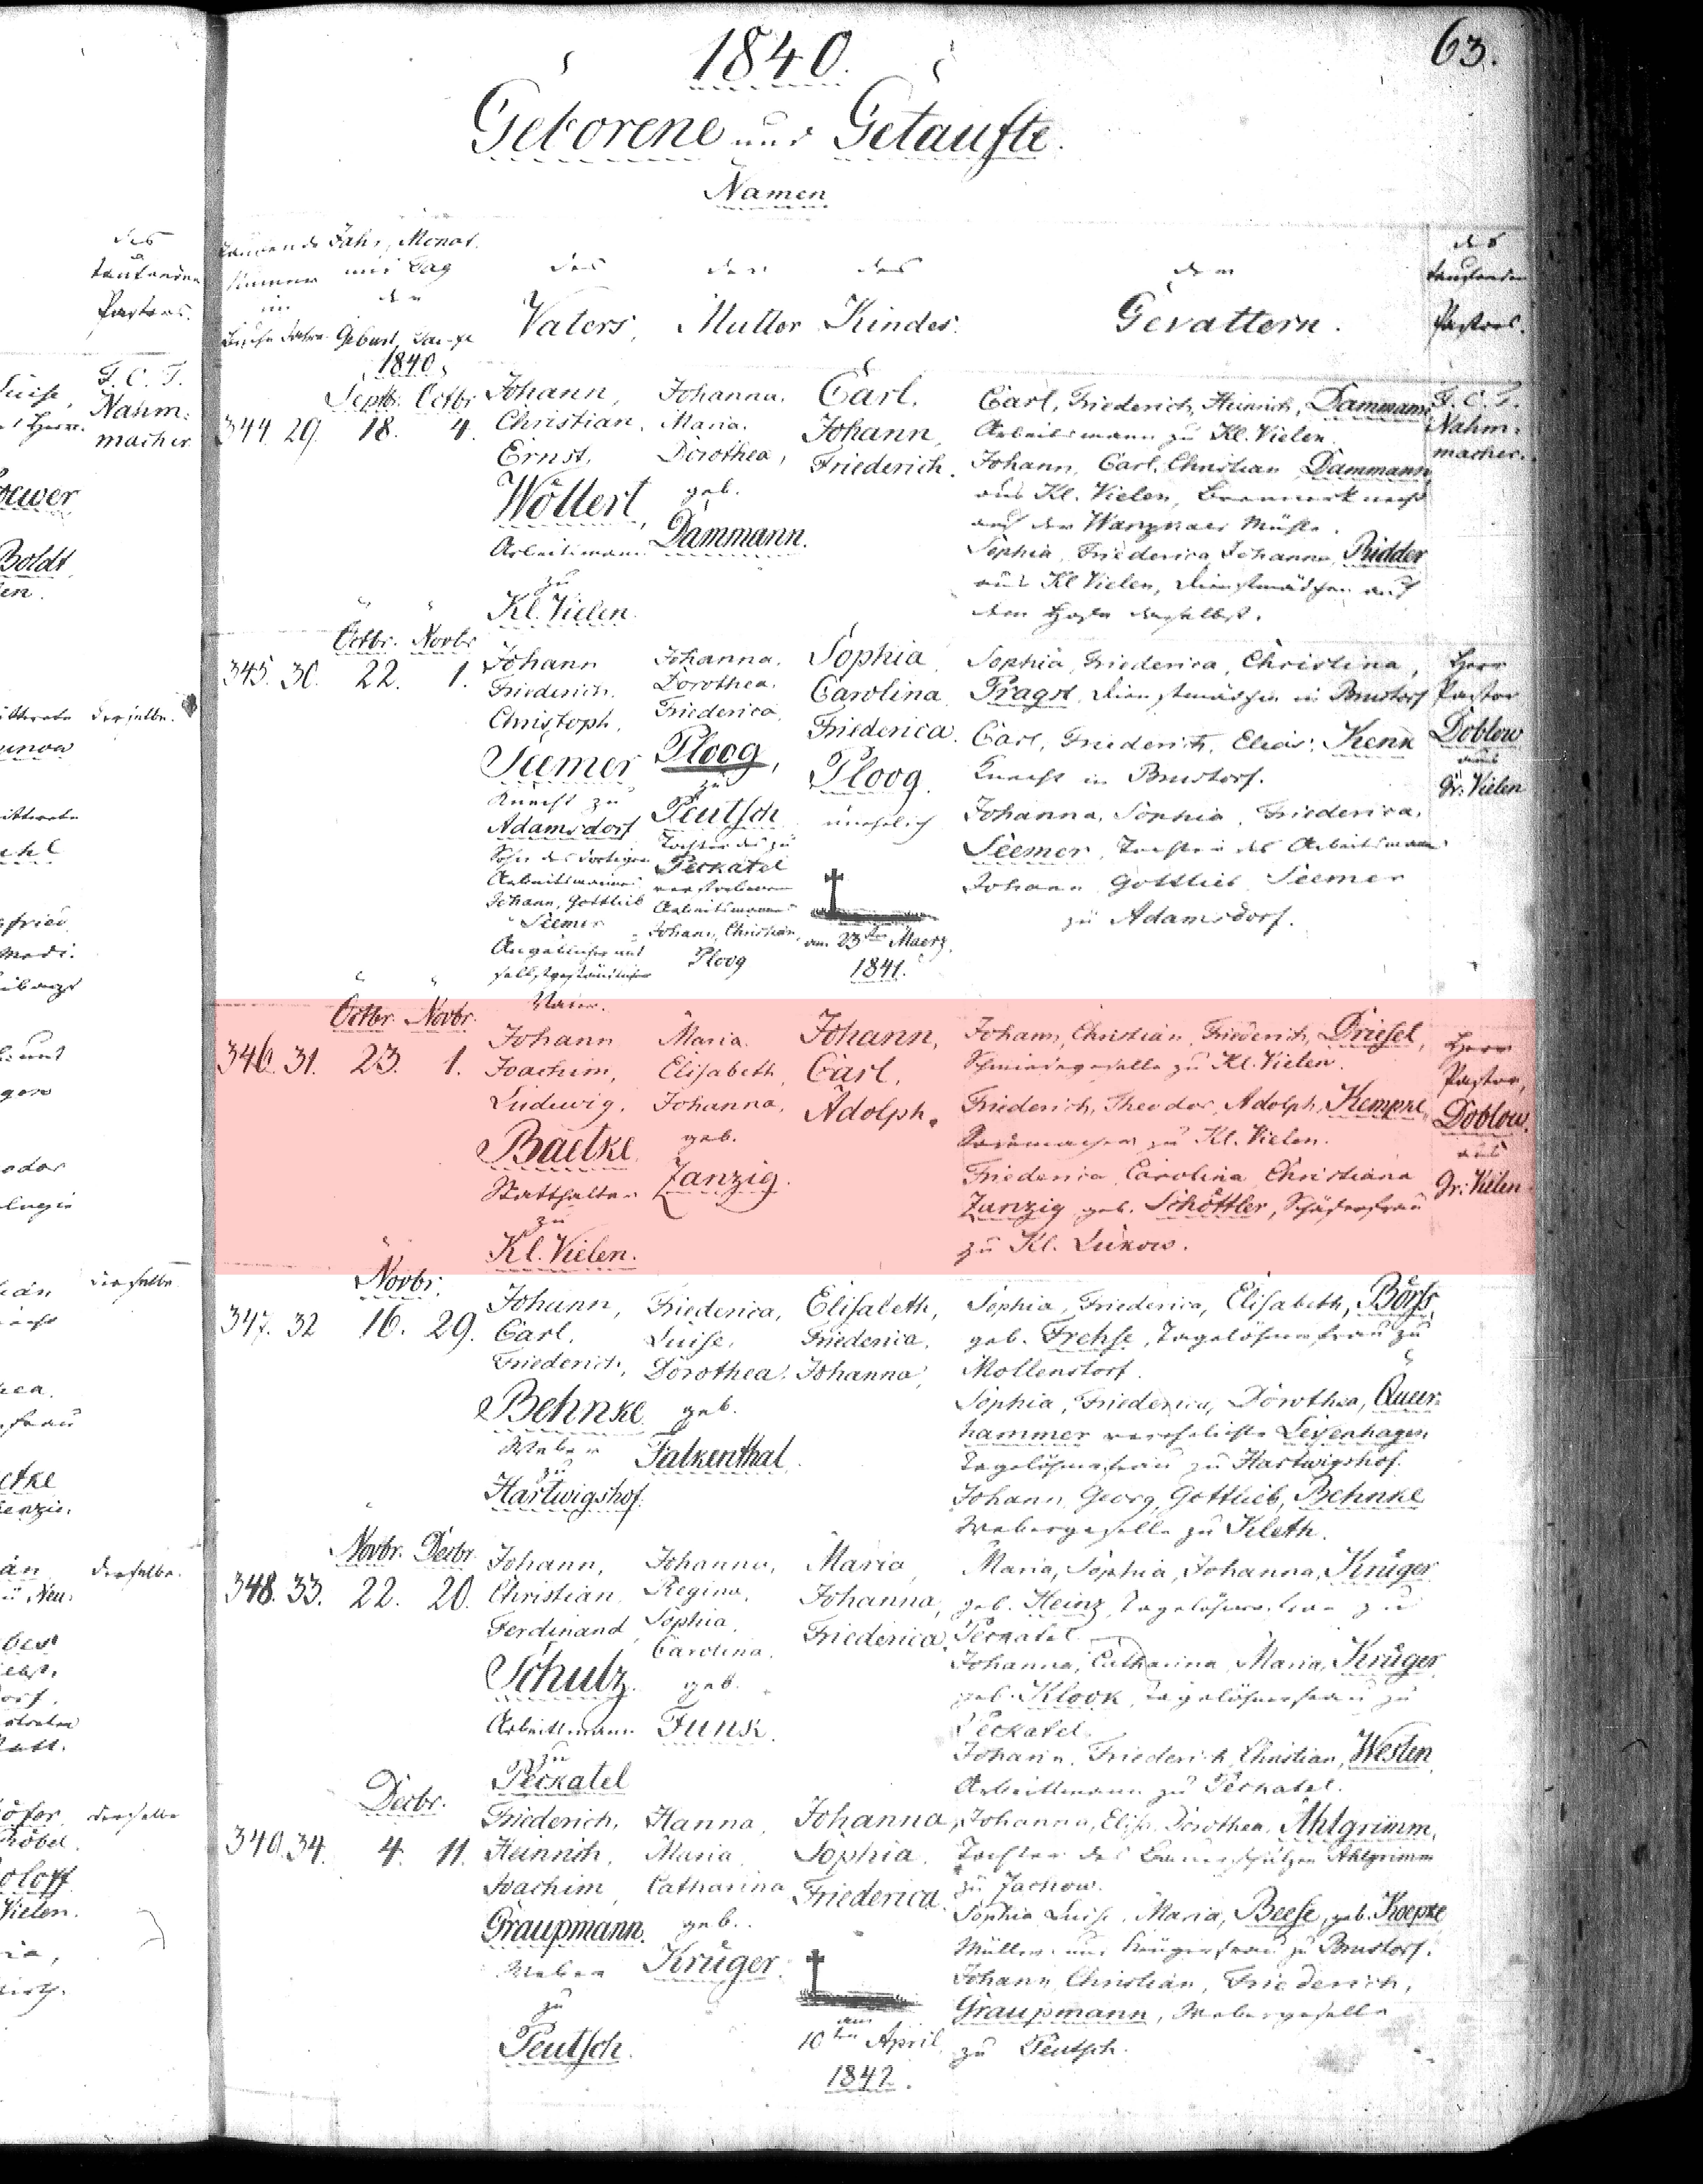 1840.
63.
Geborene und Getaufte.
Namen
des
taufenden
Pastors.
laufende
Nummer
im
Buche Jahre
Jahr, Monat
und Tag
der
Geburt, Taufe
des
Vaters,
der
Mutter
des
Kindes.
der
Gevattern.
des
taufenden
Pastors.
F. C. T.
Nahm-
macher.
1840.
Septbr. Octbr.
344. 29. 18. 4.
Johann,
Christian,
Ernst,
Wöllert,
Arbeitsmann
zu
Kl. Vielen.
Johanna,
Maria,
Dorothea,
geb.
Dammann.
Carl,
Johann,
Friederich.
Carl, Friederich, Heinrich, Dammann,
Arbeitsmann zu Kl. Vielen.
Johann, Carl, Christian Dammann,
aus Kl. Vielen,
auf der Wanzkaer Mühle.
Sophia, Friederica Johanna, Ridder
aus Kl. Vielen, Dienstmädchen auf
dem Hofe daselbst.
F. C. T.
Nahm-
macher.
Octbr. Novbr.
345. 30. 22. 1.
Johann
Friederich,
Christoph,
Seemer
Knecht zu
Adamsdorf
Sohn des dortigen
Arbeitsmannes
Johann, Gottlieb
Seemer
Angeblicher und
selbstgeständlicher
Vater.
Johanna,
Dorothea,
Friederica,
Ploog,
zu
Peutsch
Tochter des zu
Peckatel
verstorbenen
Arbeitsmanns
Johann, Christian,
Ploog
Sophia,
Carolina,
Friederica.
Ploog.
unehelich
am 23ten Maerz
1841.
Sophia, Friederica, Christina,
Pragst, Dienstmädchen in Brustorf
Carl, Friederich, Elias, Kenk
Knecht in Brustorf.
Johanna, Sophia, Friederica,
Seemer, Tochter des Arbeitsmann
Johann Gottlieb Seemer
zu Adamsdorf.
Herr
Pastor
Doblow
aus
Gr. Vielen
Octbr. Novbr.
346. 31. 23. 1.
Johann
Joachim,
Ludewig,
Baetke
Statthalter
zu
Kl. Vielen.
Maria
Elisabeth,
Johanna,
geb.
Zanzig.
Johann,
Carl,
Adolph.
Johann, Christian, Friederich, Driesel,
Schmiedegeselle zu Kl. Vielen.
Friederich, Theodor, Adolph, Kempke,
Rademacher zu Kl. Vielen.
Friederica Carolina Christiana
Zanzig geb. Schöttler, Schäferfrau
zu Kl. Lukow.
Herr
Pastor,
Doblow.
aus
Gr. Vielen
Novbr.
347. 32 16. 29.
Johann,
Carl,
Friederich,
Behnke
Weber
zu
Hartwigshof.
Friederica,
Luise,
Dorothea,
geb.
Falkenthal.
Elisabeth,
Friederica,
Johanna,
Sophia, Friederica, Elisabeth, Börss,
geb. Frehse, Tagelöhnerfrau zu
Mollenstorf.
Sophia, Friederica, Dorothea, Queer-
hammer verehelichte Leyenhagen
Tagelöhnerfrau zu Hartwigshof.
Johann, Georg, Gottlieb, Behnke
Webergeselle zu Kleth.
Novbr. Decbr.
348. 33. 22. 20.
Johann,
Christian,
Ferdinand,
Schulz.
Arbeitsmann
zu
Peckatel
Johanna,
Regina,
Sophia,
Carolina,
geb.
Funk.
Maria,
Johanna,
Friederica.
Maria, Sophia, Johanna, Krüger
geb. Heinz, Tagelöhnerfrau zu
Peckatel.
Johanna, Catharina, Maria, Krüger
geb. Klook, Tagelöhnerfrau zu
Peckatel.
Johann, Friederich, Christian, Westen,
Arbeitsmann zu Peckatel.
Decbr.
349. 34. 4. 11.
Friederich,
Heinrich,
Joachim,
Graupmann.
Weber
zu
Peutsch.
Hanna,
Maria
Catharina
geb.
Krüger.
Johanna,
Sophia,
Friederica.
am
10ten April
1842.
Johanna, Elis. Dorothea, Ahlgrimm,
Tochter des Ahlgrimm
zu Zachow.
Sophia Luise, Maria, Beese, geb. Koepke
Müller und Krügerfrau zu Brustorf.
Johann Christian, Friederich,
Graupmann, Webergeselle
zu Peutsch.